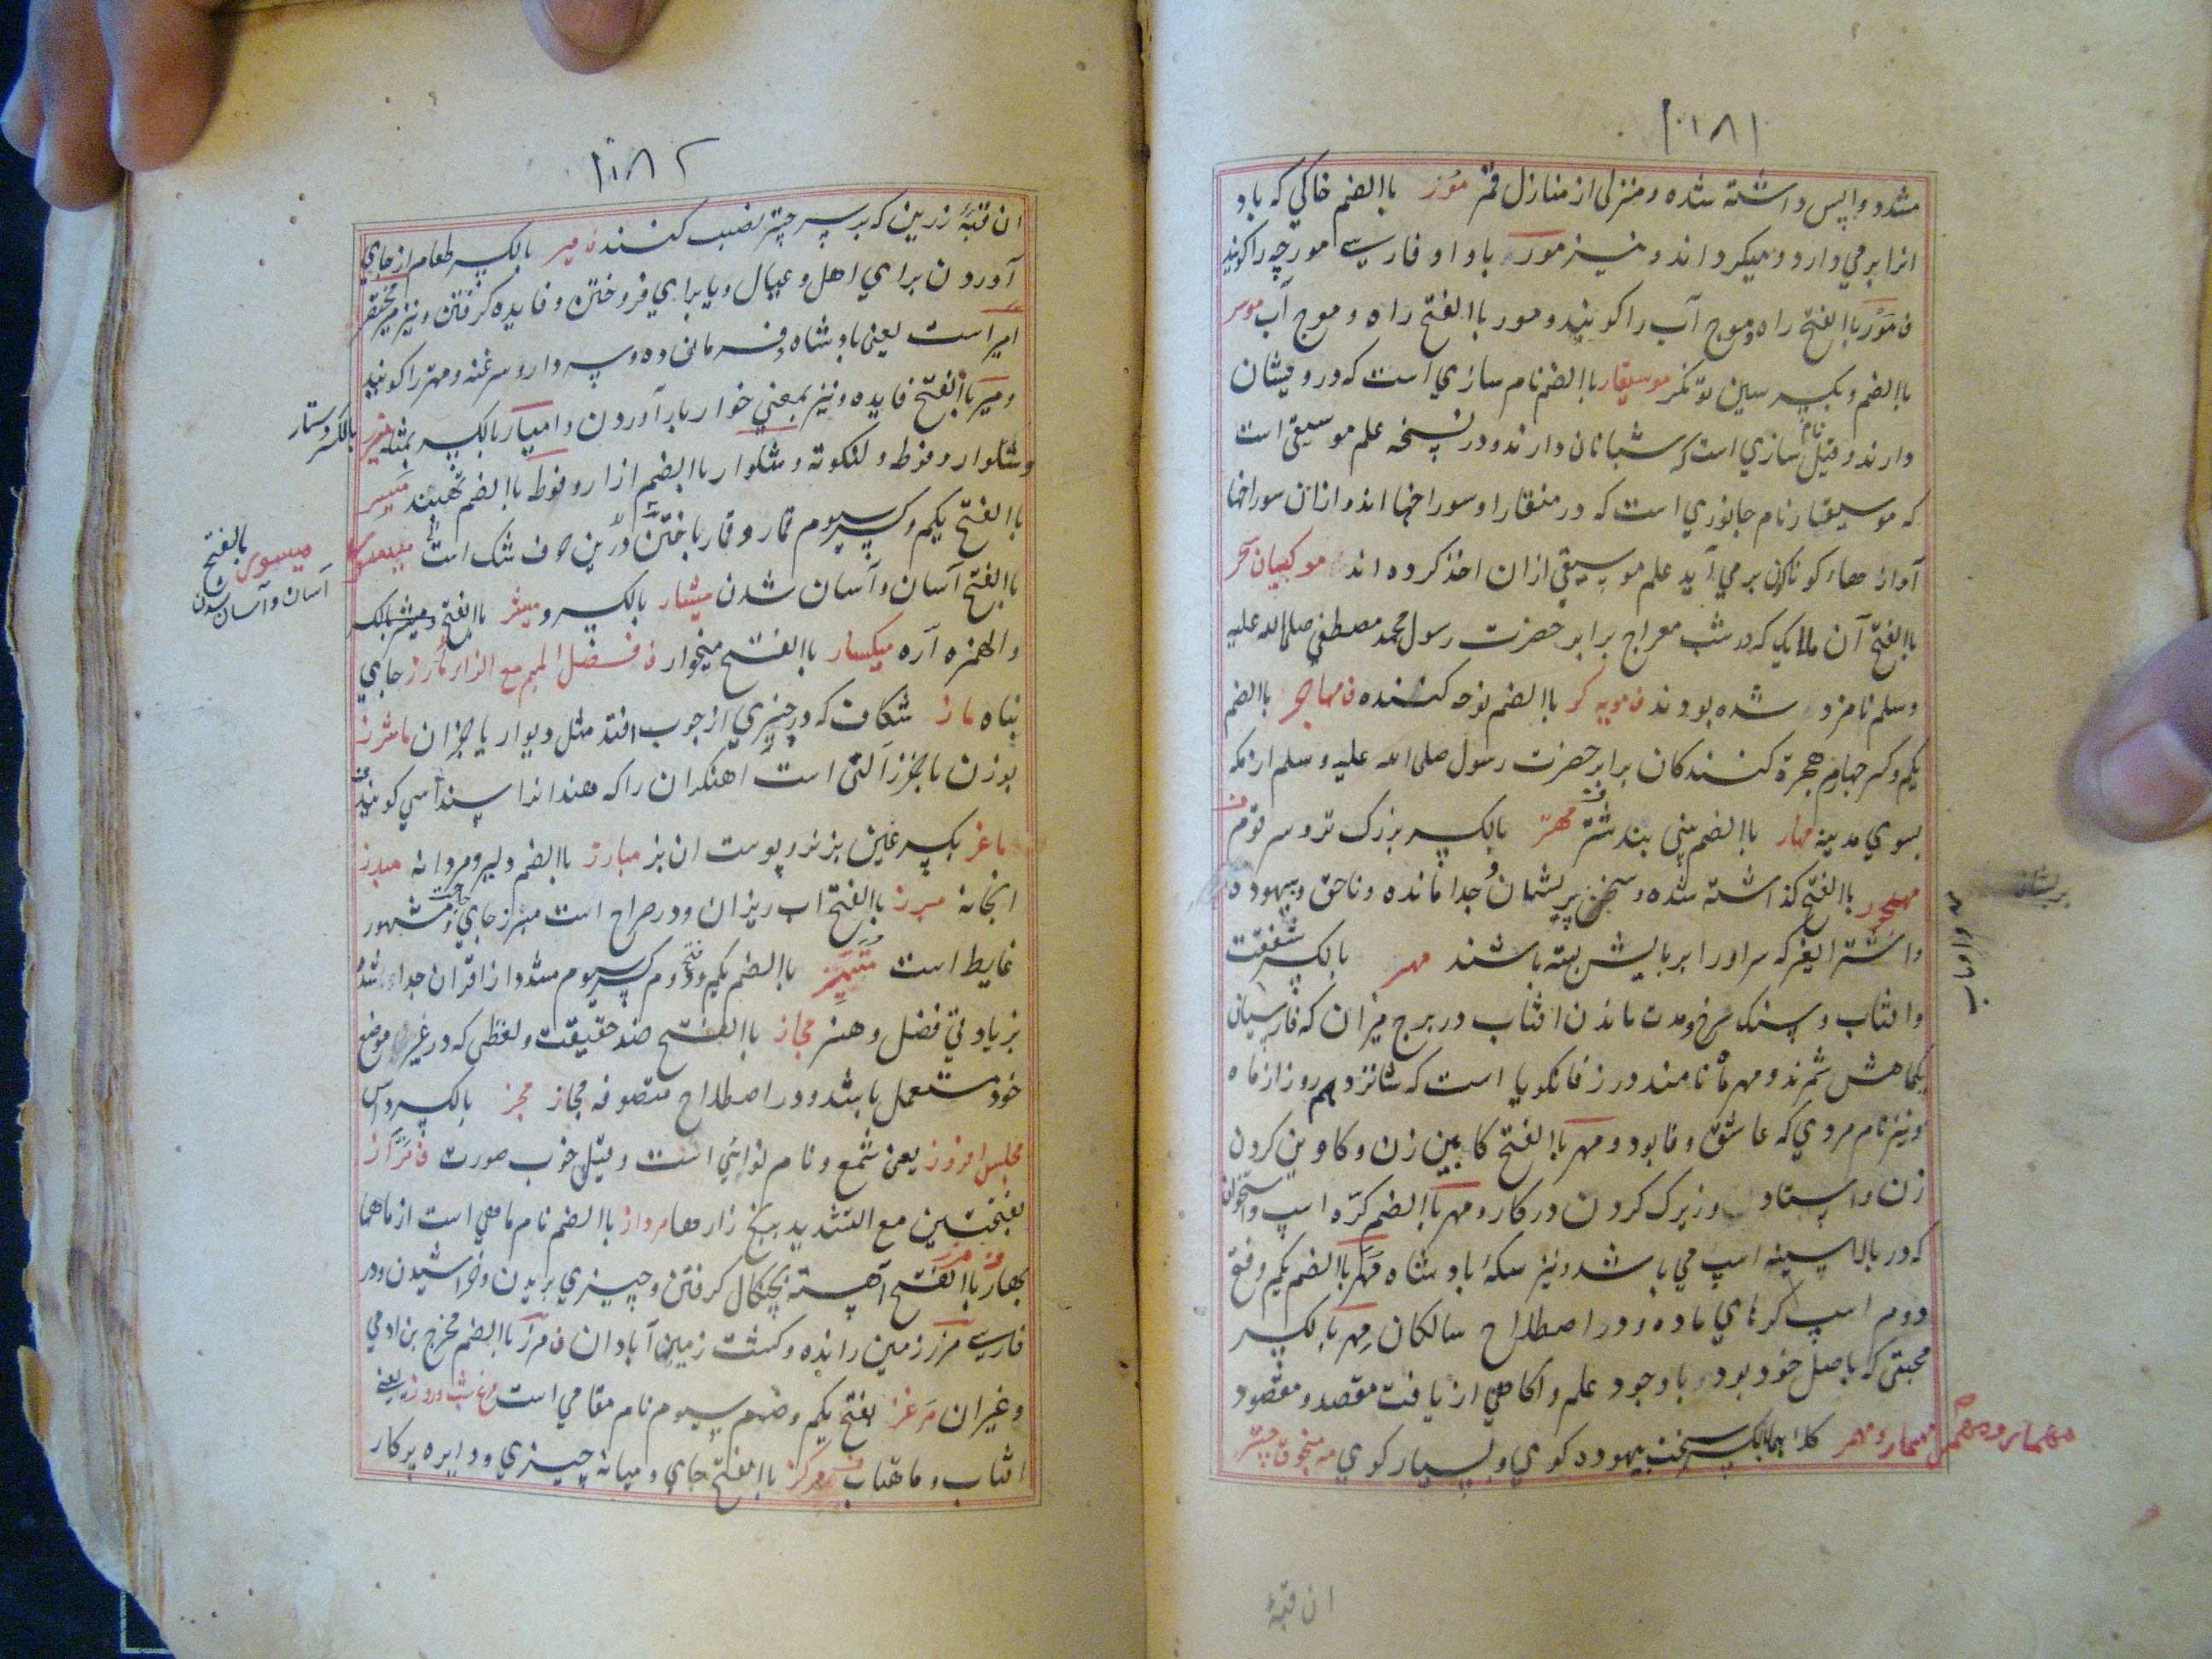 ۱۰۸۱
مشدد و واپس داشته شده و منزلی از منازل قمر مور باالضم خاکی که باد
انرا برمي دارد و میکرداند و نیز مور با واو فارسے مورچه را کویند
ف مور باالفتح راه و موج آب را کویند و مور باالفتح راه و موج آب موسر
باالضم و بکسر سین توانکر موسیقار باالضم نام سازي است که درویشان
دارند و قیل نام سازي است که شبانان دارند و در نسخه علم موسیقی است
که موسیقار نام جانوري است که در منقار او سوراخها اند و ازان سوراخها
آواز هاء کوناکون برمي آید علم موسیقی ازان اخذ کرده اند موکبیان سحر
باالفتح آن ملایک که در شب معراج برابر حضرت رسول محمد مصطفی صلی الله علیه
وسلم نامزد شده بودند ف مویه کر باالضم نوحه کننده ف مهاجر باالضم
یکم و کسر چهارم هجرة کنندکان برابر حضرت رسول صلی الله علیه وسلم از مکه
بسوي مدینه مهار باالضم بینی بند شتر مهتر بالکسر بزرک تر و سر قوم
مهجور باالفتح کذاشته شده و سخن پریشان و جدا مانده و ناحق و بیهوده
واشتر الیغر که سر اورا بر بالیش بسته باشند مهر بالکسر شفقت
وافتاب و سنک سرخ و مدت ماندن افتاب در برج میزان که فارسیان
یکماهش شمرند و مهر ماه نامند و در زفانکویا است که شانزدهم روز از ماه
و نیز نام مردي که عاشق وفا بود و مهر باالفتح کابین زن و کاوین کردن
زن و استادي و زیرک کردن در کار و مهر باالضم کره اسپ و استخوان
که در بالا سینه اسپ مي باشد و نیز سکه بادشاه مهر باالضم یکم و فتح
دوم اسپ کرهاي ماده و در اصطلاح سالکان مهر بالکسر
محبتی که باصل خود بود و باوجود علم و آکاهي از یافت مقصد و مقصود
مهمار و مهمر کلاهما بالکسر سخت بیهوده کوي و بسیار کوي مه منجوق چتر
ان قبهٔ
۱۰۸۲
ان قبهٔ زرین که بر سر چتر نصب کنند ف میر بالکسر طعام از جاي
آوردن براي اهل و عیال و یا براي فروختن و فایده کرفتن و نیز میر مختصر
امیر است یعنی بادشاه و فرمان ده و سپه دار و سرغنه و مهتر را کویند
و میر باالفتح فایده و نیز بمعني خوار بار آوردن و امتیار بالکسر بمثله میزر بالکسر دستار
و شلوار و فوطه و لنکوته و شلوار باالضم ازار و فوطه باالضم تهبند میسر
باالفتح یکم و کسر سیوم قمار و قمار باختن و درین حرف شک است میسور
باالفتح آسان و آسان شدن میشار بالکسر و میشر باالفتح و میشر بالکسر
میسور باالفتح آسان و آسان شدن
والهمزه آره میکسار باالفتح میخوار ف فصل المیم مع الزا مارز جاي
پناه ماز شکاف که در چیزي از چوب افتد مثل دیوار یا جز ان ماشرز
بوزن ناجز آلتی است آهنکران را که هند انرا سنداسي کویند
ماعز بکسر عین بز نر و پوست ان بز مبارز باالضم دلیر و مردانه مبرز
انجانه مبرز باالفتح آب ریزان و در صراح است مبرز جاي حاجت و مشهور
غایط است متمیز باالضم یکم و فتح دوم کسر سیوم مشدد از اقران جدا شده
بزیادتي فضل و هنر مجاز باالفتح ضد حقیقت و لفظی که در غیر موضع
خود مستعمل باشد و در اصطلاح متصوفه مجاز مجز بالکسر داس
مجلس افروز یعنی شمع و نام نوائي است و قیل خوب صورت ف مراز
بفتحتین مع التشدید بیخ زارها مرداز باالضم نام ماهي است از ماهها
بهار باالفتح آهسته بچنکال کرفتن و چیزي بریدن و خراشیدن و در
فارسے مرز زمین رانده و کشت زمین آبادان ف مرز باالضم مخرج بن ادمي
و غیر ان مرغز بفتح یکم و ضم سیوم نام مقامي است مرغ شب و روز یعنی
افتاب و ماهتاب مرکز باالفتح جاي و میانه چیزي و دایره پرکار